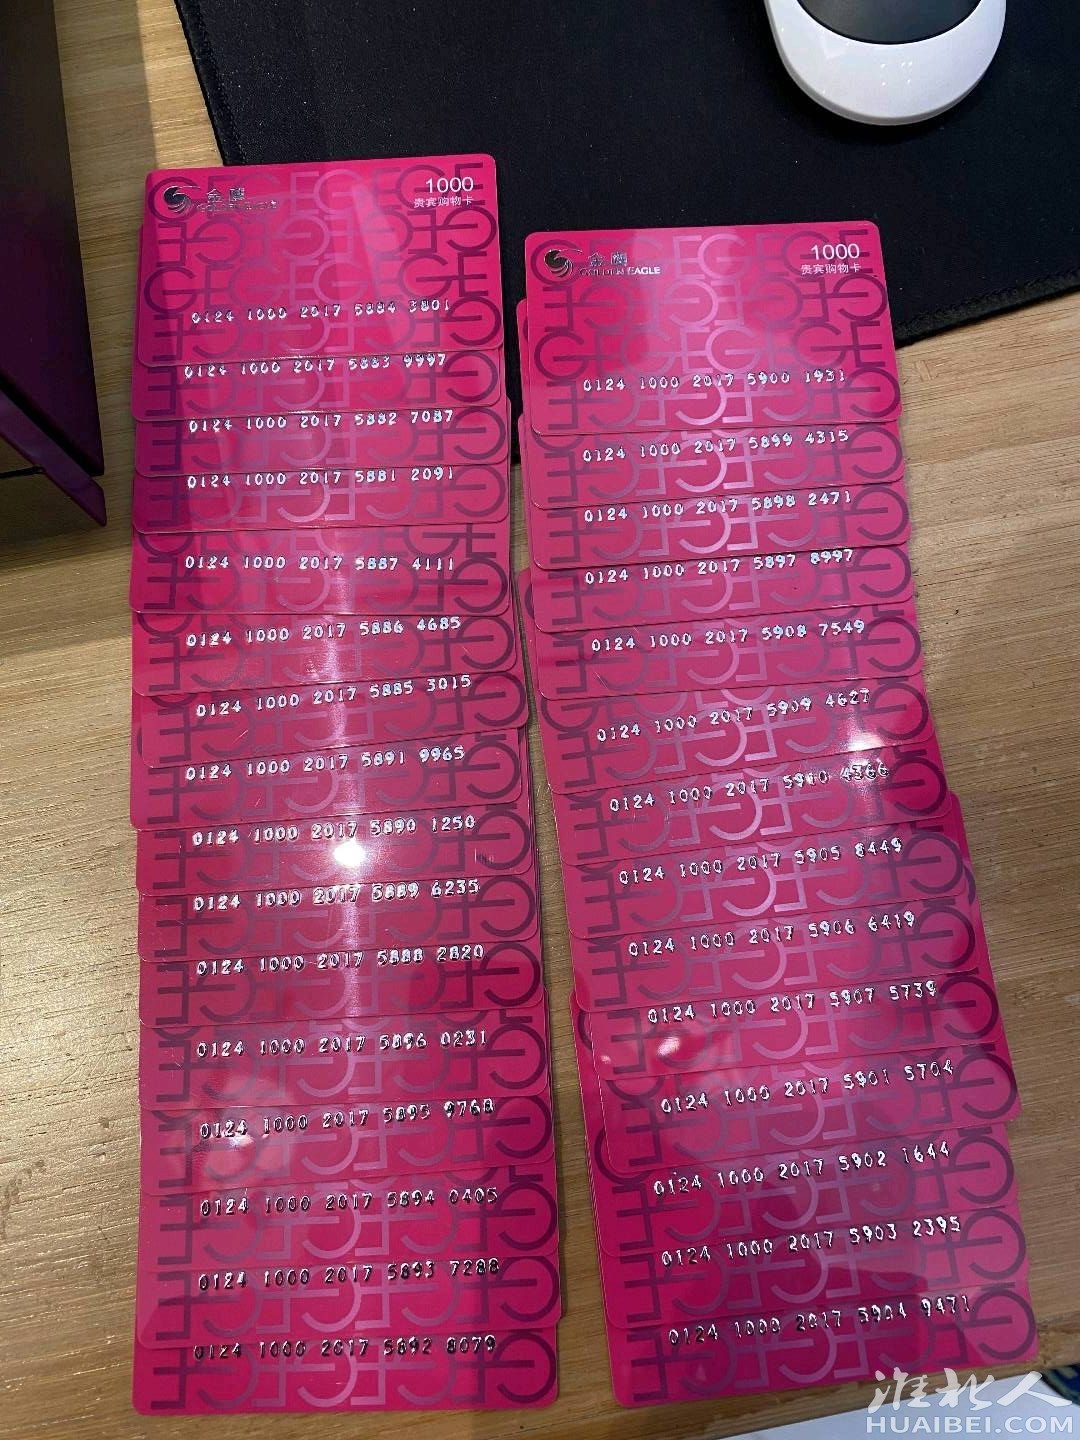 金鹰
GOLDEN EAGLE
1000
贵宾购物卡
0124 1000 2017 5884 3801
0124 1000 2017 5883 9997
0124 1000 2017 5882 7087
0124 1000 2017 5881 2091
0124 1000 2017 5887 4111
0124 1000 2017 5886 4685
0124 1000 2017 5885 3015
0124 1000 2017 5891 9965
0124 1000 2017 5890 1250
0124 1000 2017 5889 6235
0124 1000 2017 5888 2820
0124 1000 2017 5896 0231
0124 1000 2017 5895 9768
0124 1000 2017 5894 0405
0124 1000 2017 5893 7288
0124 1000 2017 5892 8079
金鹰
GOLDEN EAGLE
1000
贵宾购物卡
0124 1000 2017 5900 1931
0124 1000 2017 5899 4315
0124 1000 2017 5898 2471
0124 1000 2017 5897 8997
0124 1000 2017 5908 7549
0124 1000 2017 5909 4627
0124 1000 2017 5910 4366
0124 1000 2017 5905 8449
0124 1000 2017 5906 6419
0124 1000 2017 5907 5739
0124 1000 2017 5901 5704
0124 1000 2017 5902 1644
0124 1000 2017 5903 2395
0124 1000 2017 5904 9471
淮北人
HUAIBEI.COM